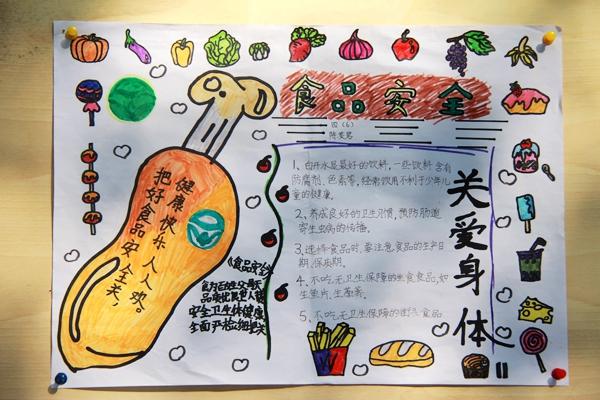 食品安全
四（6）
健康快乐人人欢。
把好食品安全关，
1、白开水是最好的饮料，一些饮料含有
防腐剂、色素等，经常饮用不利于少年儿
童的健康。
2、养成良好的卫生习惯，预防肠道
寄生虫病的传播。
3、选择食品时，要注意食品的生产日
期、保质期。
4、不吃无卫生保障的生食食品，如
生鱼片、生荸荠。
5、不吃无卫生保障的街头食品
关爱身体
《食品安全》
安全卫生保健康
全面严格细把关